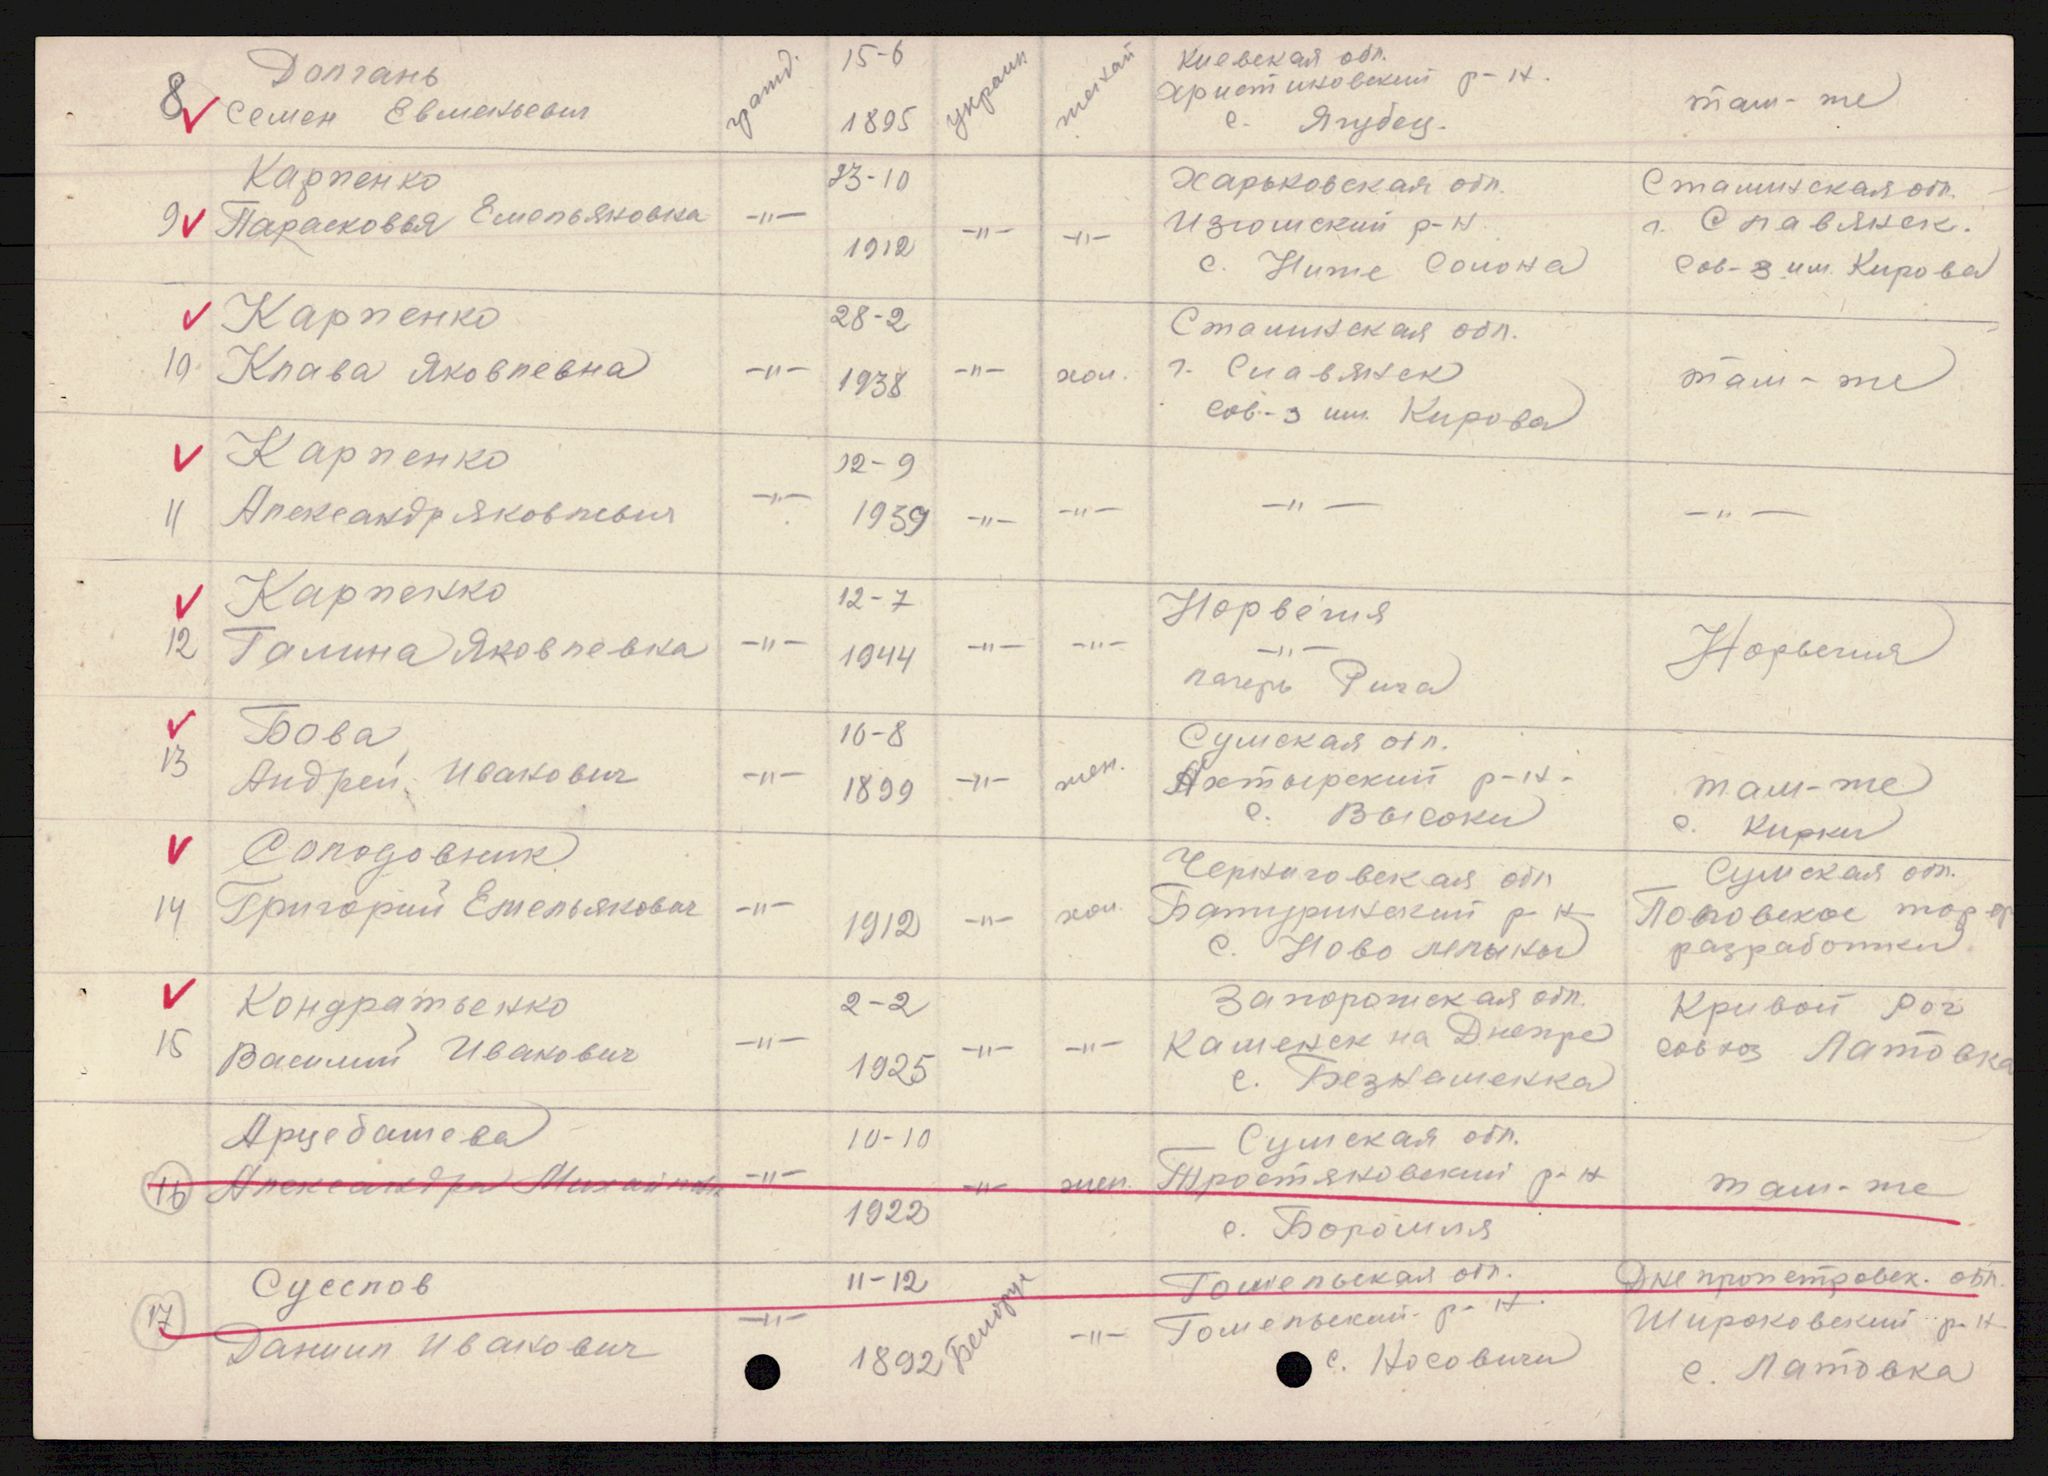 8 Долгань
Семен Евменьевич
гражд.
15-6
1895
украин
женат
Киевская обл.
Христиновский р-н.
с. Ягубец.
там-же
Карпенко
9 Парасковья Емельяновна
-"-
23-10
1912
-"-
-"-
Харьковская обл.
Изюмский р-н
с. Ниже Солона
Сталинская обл.
г. Славянск.
сов-з им. Кирова
Карпенко
10 Клава Яковлевна
-"-
28-2
1938
-"-
хол.
Сталинская обл.
г. Славянск
сов-з им. Кирова
там-же
Карпенко
11 Александр Яковлевич
-"-
12-9
1939
-"-
-"-
-"-
-"-
Карпенко
12 Галина Яковлевна
-"-
12-7
1944
-"-
-"-
Норвегия
-"-
лагерь Рига
Норвегия
13 Бова
Андрей Иванович
-"-
10-8
1899
-"-
жен.
Сумская обл.
Ахтырский р-н.
с. Высоки
там-же
с. Кирки
Солодовник
14 Григорий Емельянович
-"-
1912
-"-
хол.
Черниговская обл
Батуринский р-н
с. Ново млыны
Сумская обл.
разработки
Кондратьенко
15 Василий Иванович
-"-
2-2
1925
-"-
-"-
Запорожская обл.
Каменск на Днепре
с. Безнаменка
Кривой Рог
совхоз Латовка
Арцебашева
16 Александра Михайлов
-"-
10-10
1922
-"-
жен.
Сумская обл.
Тростяновский р-н
с. Боромля
там-же
Суслов
17
Даниил Иванович
-"-
11-12
1892
Белорус
-"-
Гомельская обл.
Гомельский р-н.
с. Носовичи
Днепропетровск. обл.
Широковский р-н
с. Латовка